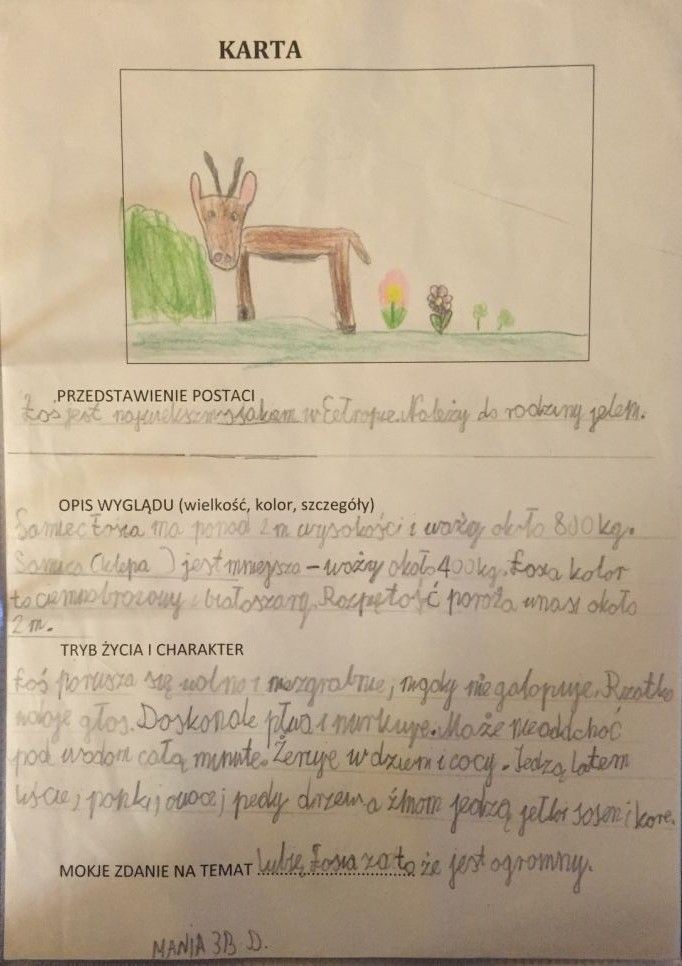 KARTA
PRZEDSTAWIENIE POSTACI
Łoś jest największm ssakem w Eełropie. Należy do rodziny jeleni.
OPIS WYGLĄDU (wielkość, kolor, szczegóły)
Samiec łosia ma ponad 2 m wysokości i waży około 800 kg.
Samica (klępa) jest mniejsza – waży około 400 kg. Łosia kolor
to ciemnobrozowy i białoszary. Rozpiętość poroża wnosi około
2 m.
TRYB ŻYCIA I CHARAKTER
Łoś porusza się wolno i niezgrabnie, nigdy nie galopuje. Rzatko
wdaje głos. Doskonale pływa i nurkuje. Może nieoddchoć
pod wodom całą minute. Żeruje w dzien i cocy. Jedzą latem
liście, pąpki, owoce, pedy drzew a źimom jedzą jetłor sosen i kore.
MOKJE ZDANIE NA TEMAT Lubię Łosia za to że jest ogromny.
MANIA 3B D.